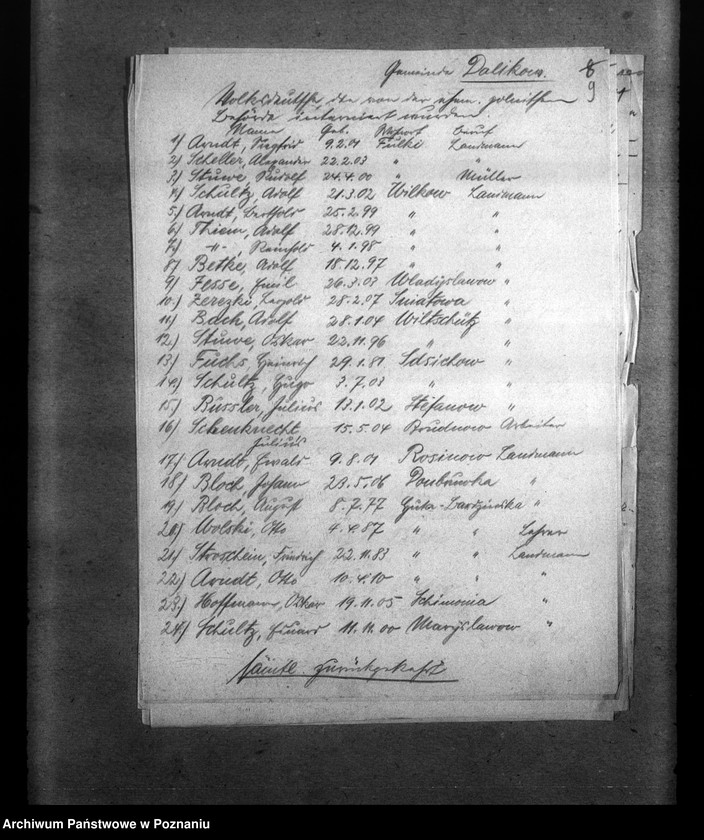 Gemeinde Dalikow. 8
9
Volksdeutsche, die von der ehem. polnischen
Behörde interniert wurden.
Name Geb. Wohnort Beruf
1) Arndt, Siegfrid 9.2.01 Fulki Landmann
2) Scheller, Alexander 22.2.03 " "
3) Stuwe, Rudolf 24.4.00 " Müller
4) Schultz, Adolf 21.3.02 Wilkow Landmann
5) Arndt, Berthold 25.2.99 " "
6) Thiem, Adolf 28.12.99 " "
7) -"- , Reinhold 4.1.98 " "
8) Betke, Adolf 18.12.97 " "
9) Fesse, Emil 26.3.03 Wladyslawow "
10) Zerezki, Leopold 28.2.07 Sniatowa "
11) Bach, Adolf 28.1.04 Wiltschütz "
12) Stuwe, Oskar 22.11.96 " "
13) Fuchs, Heinrich 29.1.81 Sdsichow "
14) Schultz, Hugo 3.7.03 " "
15) Büssler, Julius 13.1.02 Stefanow "
16) Schenknecht 15.5.04 Brudnow Arbeiter
Julius
17) Arndt, Ewald 9.8.01 Rosinow Landmann
18) Bloch, Johann 23.5.06 "
19) Bloch, August 8.7.77 Huta-Bardzinska "
20) Wolski, Otto 4.4.87 " " Lehrer
21) Stroschein, Friedrich 22.11.83 " " Landmann
22) Arndt, Otto 10.4.10 " " "
23) Hoffmann, Oskar 19.11.05 Schimonia "
24) Schultz, Eduard 11.11.00 Maryslawow "
Sämtl. zurückgekehrt
Archiwum Państwowe w Poznaniu